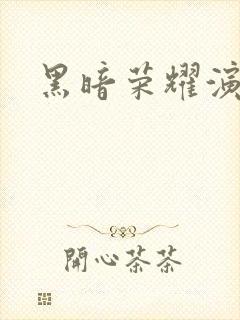 黑暗荣耀演
開心茶茶